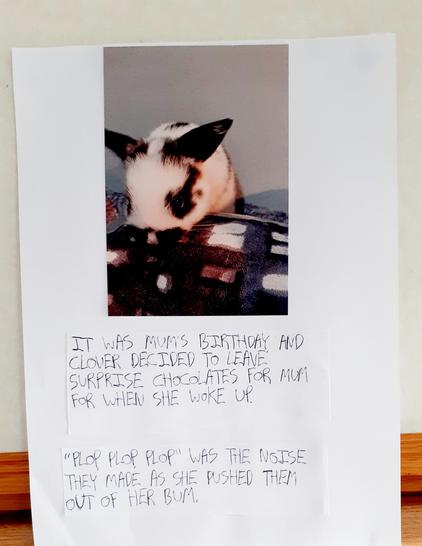 IT WAS MUM'S BIRTHDAY AND
CLOVER DECIDED TO LEAVE
SURPRISE CHOCOLATES FOR MUM
FOR WHEN SHE WOKE UP.
"PLOP PLOP PLOP" WAS THE NOISE
THEY MADE AS SHE PUSHED THEM
OUT OF HER BUM.